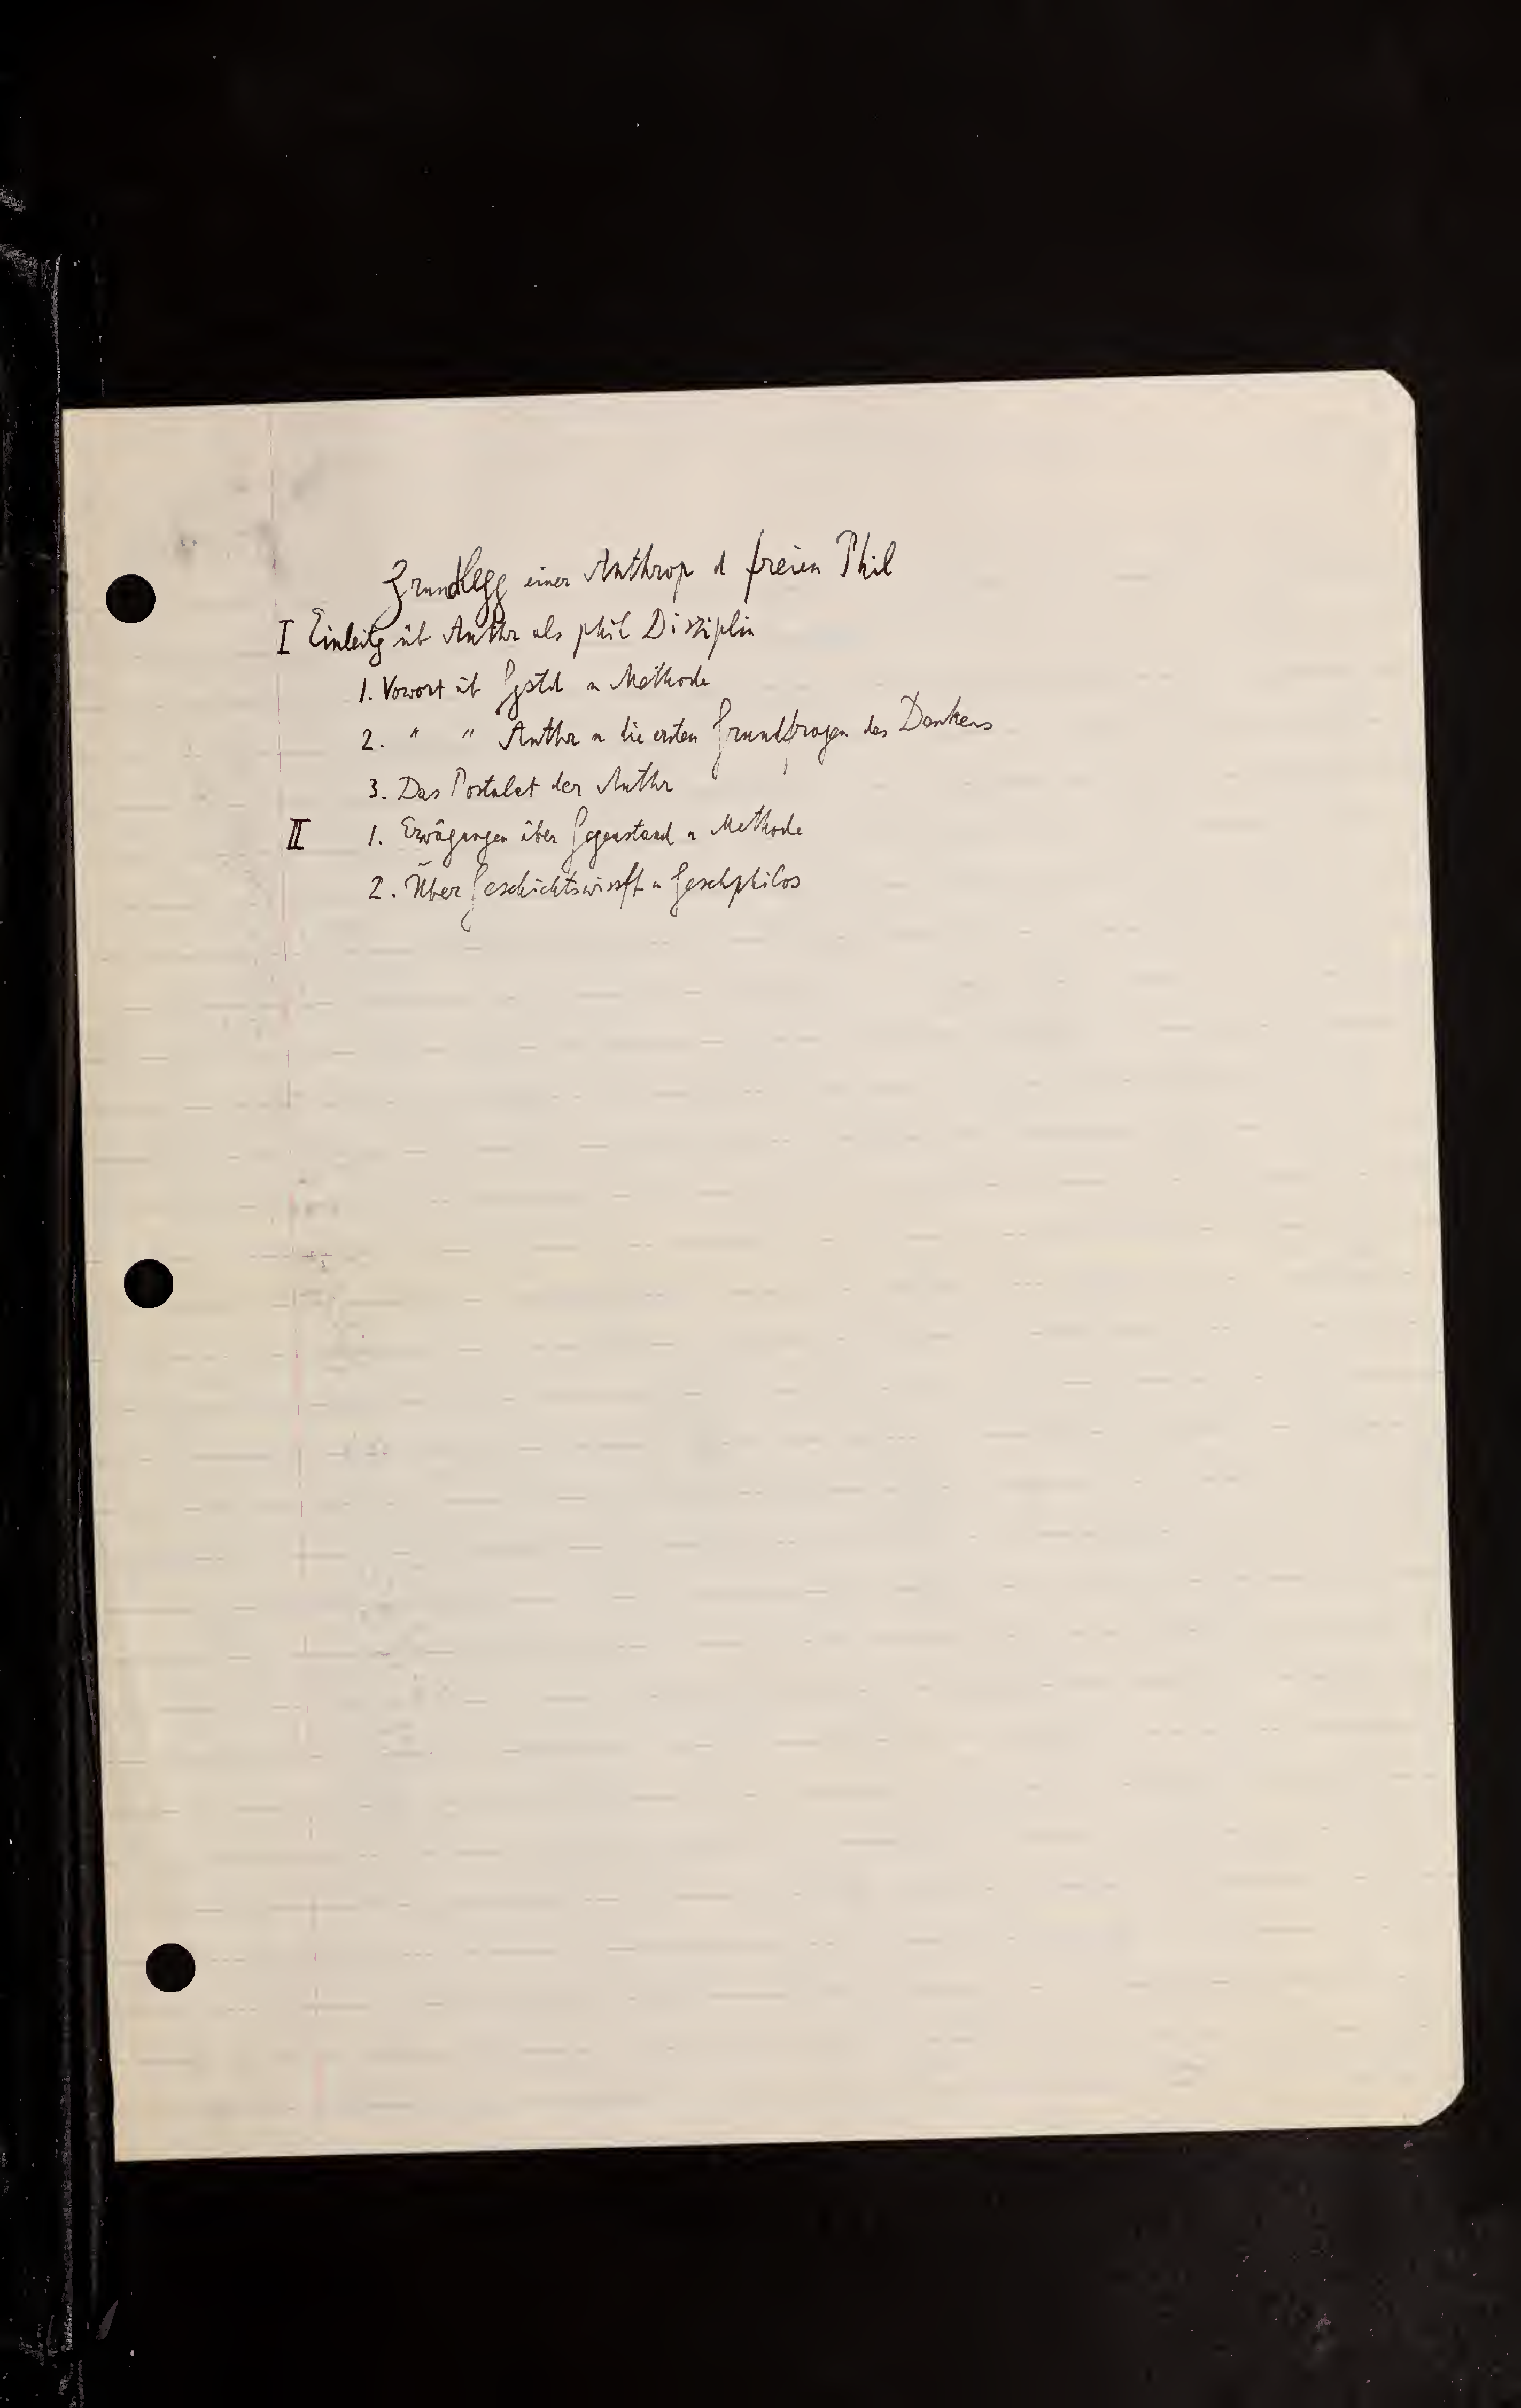 Grundlegg einer Anthrop d freien Phil
I Einleitg üb Anthr als phil Disziplin
1. Vowort üb Ggstd u Methode
2. " " Anthr u die ersten Grundfragen des Denkens
3. Das Postulat der Anthr
II 1. Erwägungen über Gegenstand u Methode
2. Über Geschichtswissft u Geschphilos